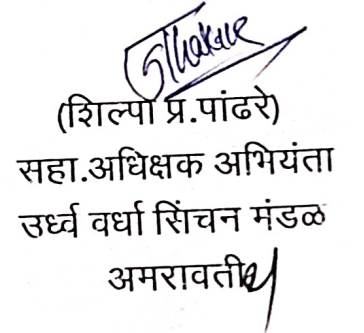 (शिल्पा प्र.पांढरे)
सहा.अधिक्षक अभियंता
उर्ध्व वर्धा सिंचन मंडळ
अमरावती